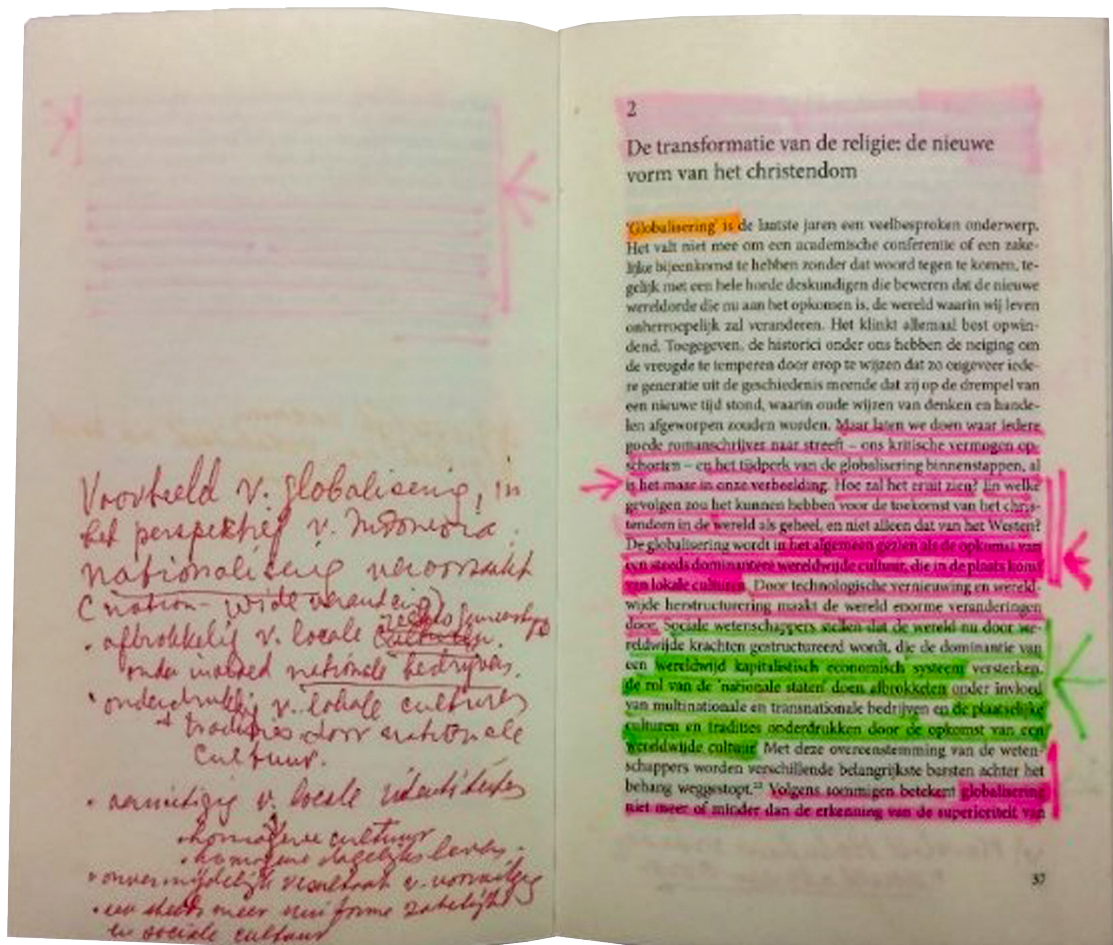 Voorbeeld v. globalisering, in
het perspektief v. Indonesia:
nationalisering veroorzaakt
(nation-wide verandering)
· afbrokkeling v. locale
onder invloed nationale bedrijven.
· onderdrukking v. lokale culturen
+ tradities door nationale
cultuur.
· vernietiging v. locale identiteiten
· homogene cultuur
· homogene dagelijks leven.
· onvermijdelijk resultaat v. vooruitgang
· een steeds meer uniforme zakelijke
en sociale cultuur
2
De transformatie van de religie: de nieuwe
vorm van het christendom
'Globalisering' is de laatste jaren een veelbesproken onderwerp.
Het valt niet mee om een academische conferentie of een zake-
lijke bijeenkomst te hebben zonder dat woord tegen te komen, te-
gelijk met een hele horde deskundigen die beweren dat de nieuwe
wereldorde die nu aan het opkomen is, de wereld waarin wij leven
onherroepelijk zal veranderen. Het klinkt allemaal best opwin-
dend. Toegegeven, de historici onder ons hebben de neiging om
de vreugde te temperen door erop te wijzen dat zo ongeveer iede-
re generatie uit de geschiedenis meende dat zij op de drempel van
een nieuwe tijd stond, waarin oude wijzen van denken en hande-
len afgeworpen zouden worden. Maar laten we doen waar iedere
goede romanschrijver naar streeft – ons kritische vermogen op-
schorten – en het tijdperk van de globalisering binnenstappen, al
is het maar in onze verbeelding. Hoe zal het eruit zien? En welke
gevolgen zou het kunnen hebben voor de toekomst van het chris-
tendom in de wereld als geheel, en niet alleen dat van het Westen?
De globalisering wordt in het algemeen gezien als de opkomst van
een steeds dominantere wereldwijde cultuur, die in de plaats komt
van lokale culturen. Door technologische vernieuwing en wereld-
wijde herstructurering maakt de wereld enorme veranderingen
door. Sociale wetenschappers stellen dat de wereld nu door we-
reldwijde krachten gestructureerd wordt, die de dominantie van
een wereldwijd kapitalistisch economisch systeem versterken,
de rol van de 'nationale staten' doen afbrokkelen onder invloed
van multinationale en transnationale bedrijven en de plaatselijke
culturen en tradities onderdrukken door de opkomst van een
wereldwijde cultuur. Met deze overeenstemming van de weten-
schappers worden verschillende belangrijkste barsten achter het
behang weggestopt. Volgens sommigen betekent globalisering
niet meer of minder dan de erkenning van de superioriteit van
37